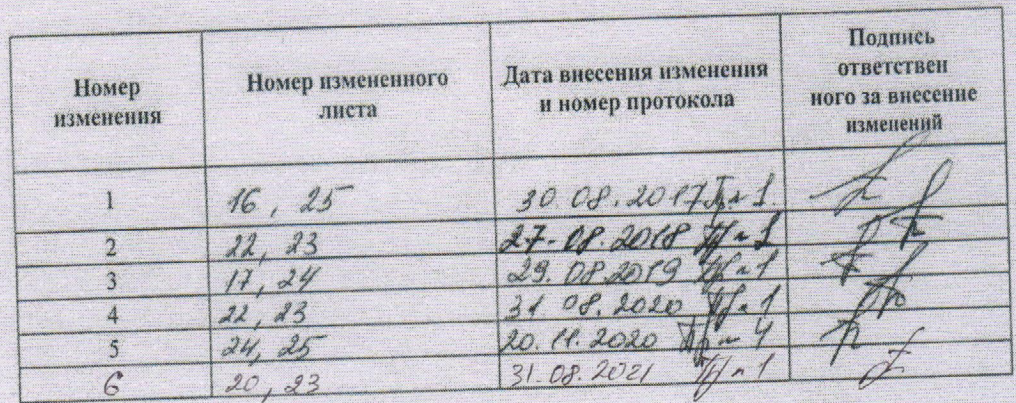 Номер изменения
Номер измененного листа
Дата внесения изменения и номер протокола
Подпись ответствен ного за внесение изменений
1 16, 25 30.08.2017 Пр № 1.
2 22, 23 27.08.2018 Пр № 1
3 17, 24 29.08.2019 Пр № 1
4 22, 23 31 08.2020 Пр № 1
5 24, 25 20.11.2020 Пр № 4
6 20, 23 31.08.2021 Пр № 1